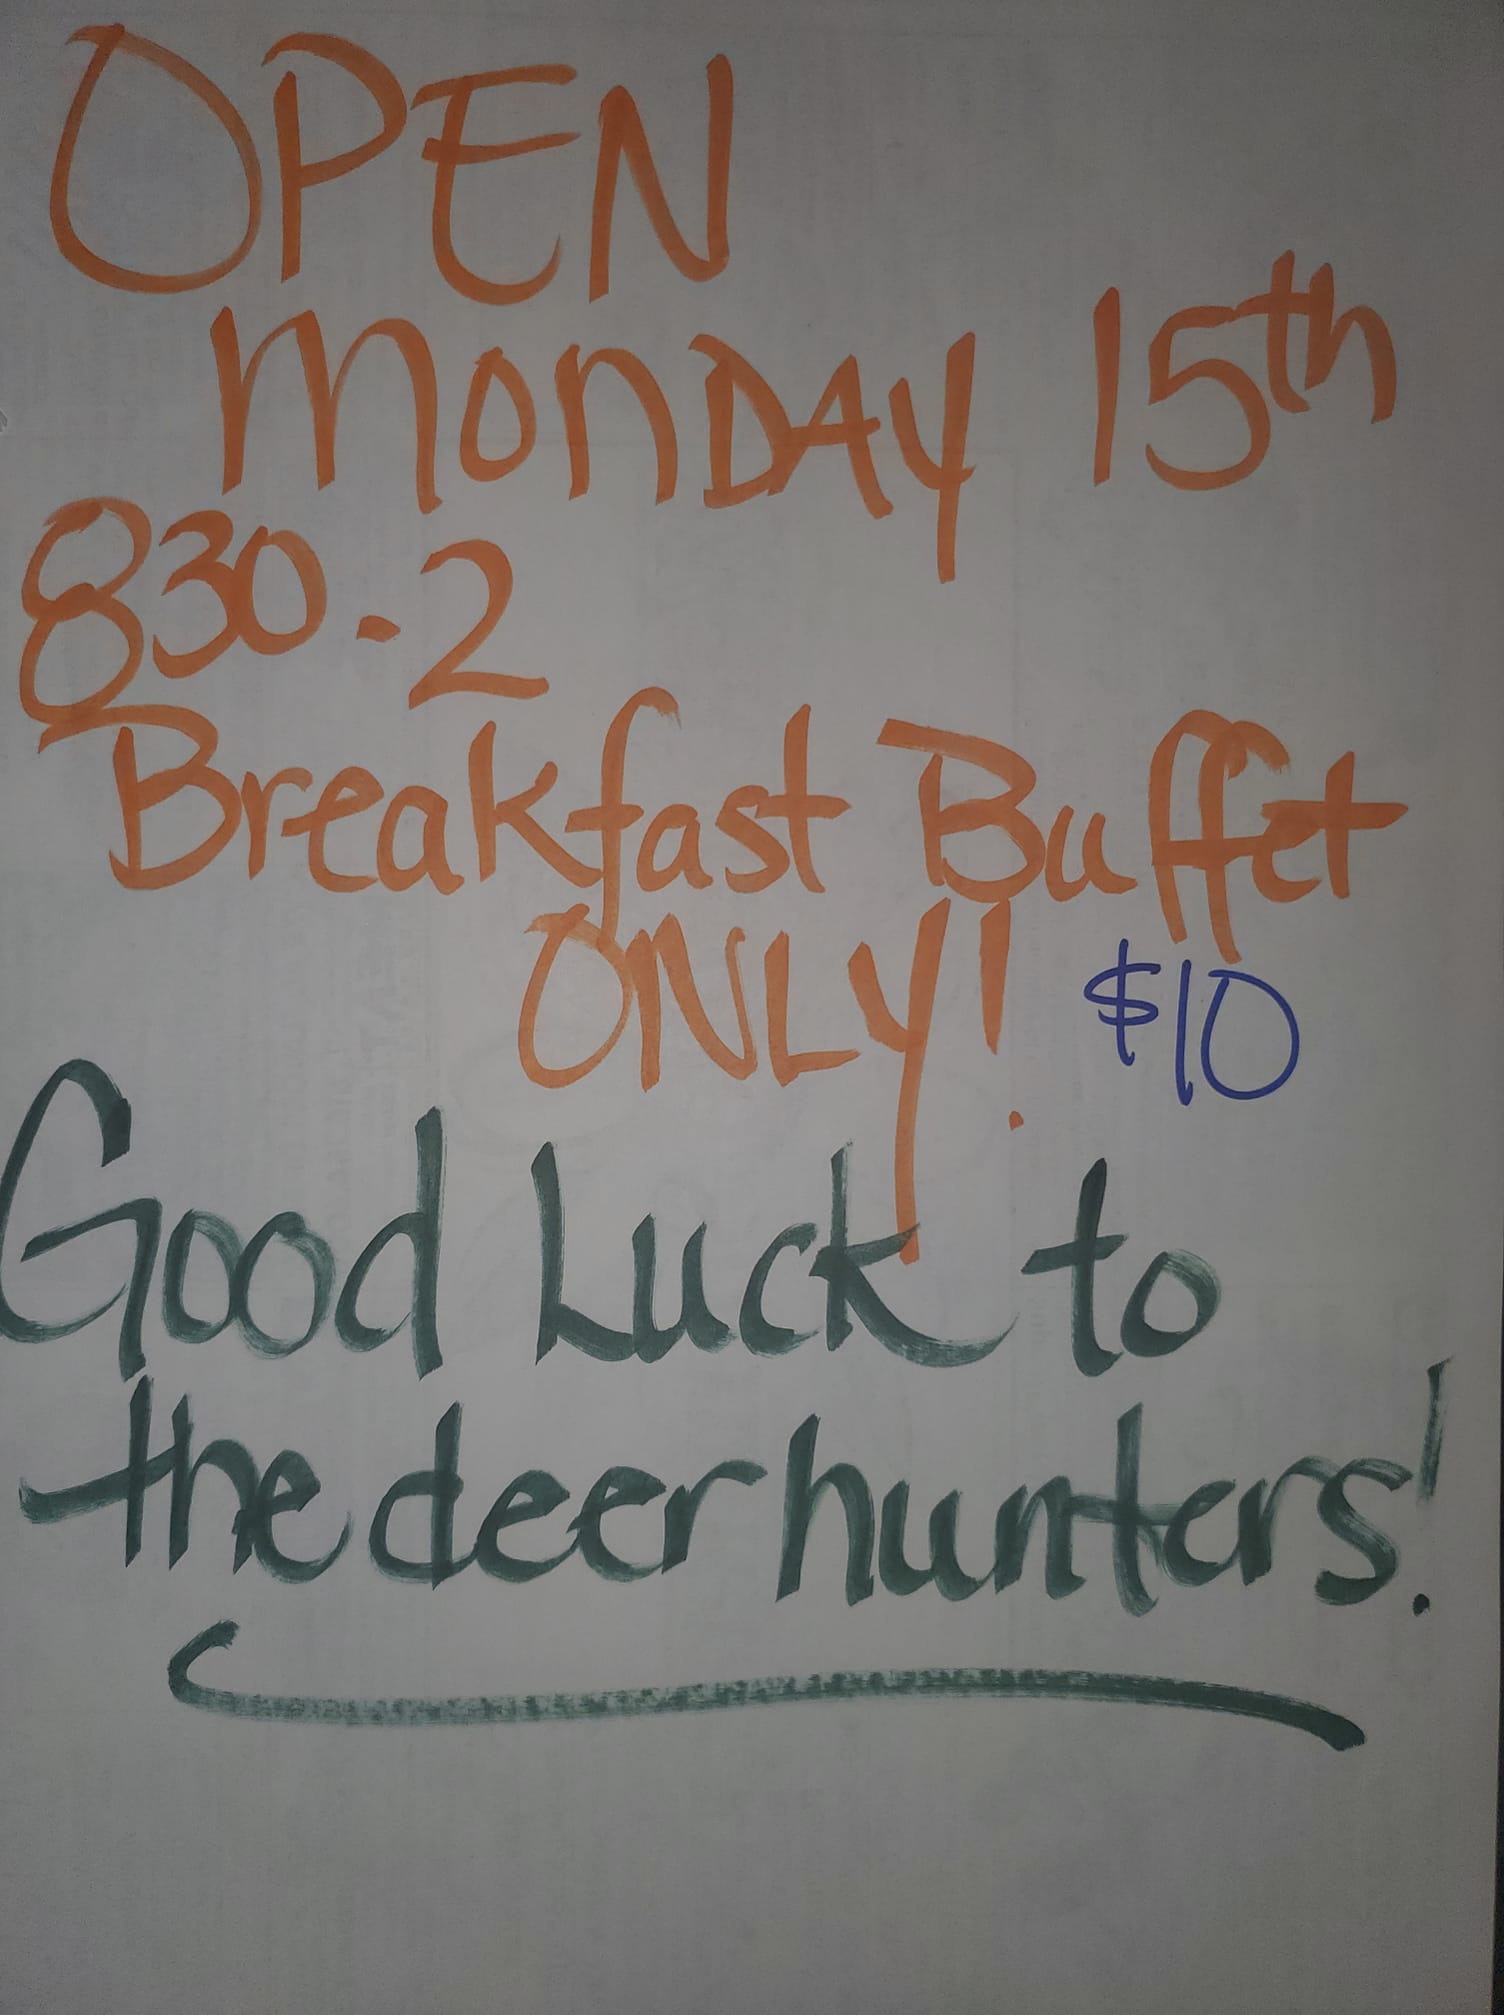 OPEN
MonDAY 15th
830-2
Breakfast Buffet
ONLY! $10
Good Luck to
the deer hunters!